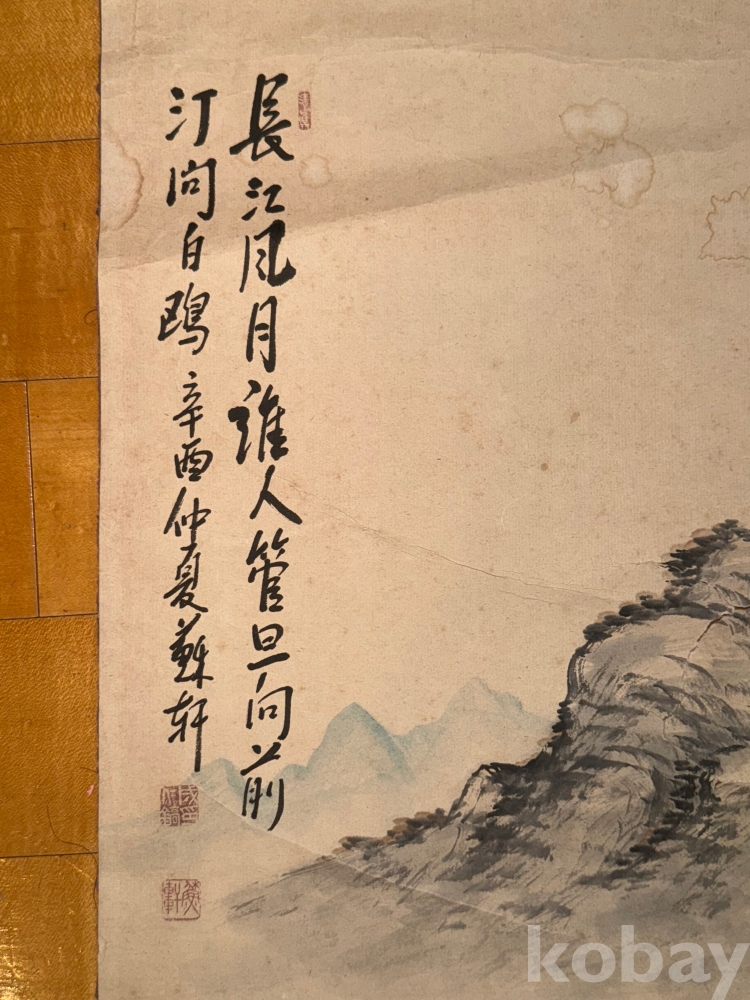 長江風月誰人管旦向前
汀問白鷗 辛酉仲夏蘇軒
kobay